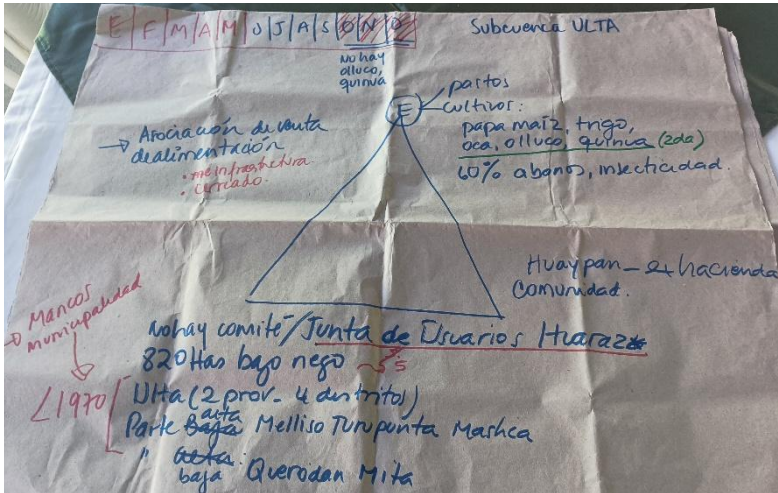 E|F|M|A|M|J|J|A|S|O|N|D
Subcuenca ULTA
No hay
olluco,
quinua
E
pastos
cultivos:
papa maíz, trigo,
oca, olluco, quinua (2da)
60% abonos, insecticidad.
→ Asociación de venta
de alimentación
• me infraestructura.
• cercado.
Huaypan - ex hacienda
comunidad.
→ Mancos
municipalidad
No hay comité / Junta de Usuarios Huaraz
820 Has bajo riego
<1970
Ulta (2 prov - 4 distritos)
Parte alta Melliso Turupunta Mashca
" baja Querodan Mita